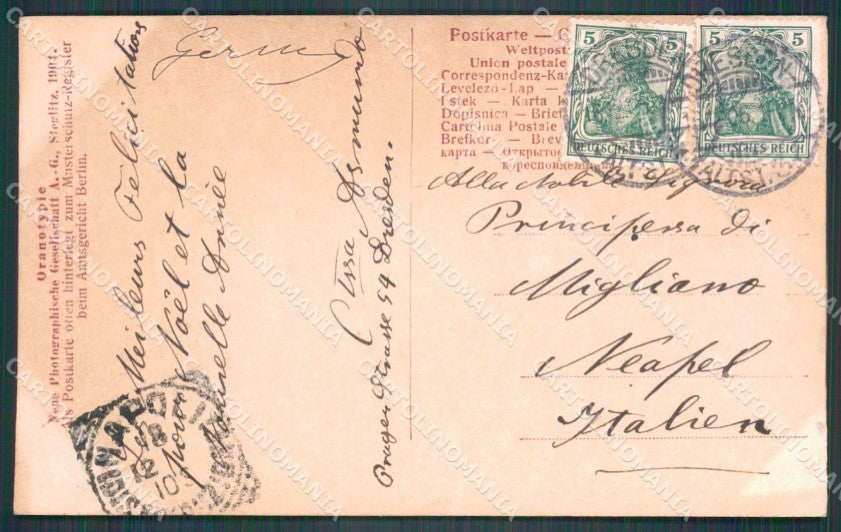 Oranotypie
Neue Photographische Gesellschaft A.-G., Steglitz, 1904.
Als Postkarte offen hinterlegt zum Musterschutz-Register
beim Amtsgericht Berlin.
Meilleurs Félicitations
pour Noël et la
Nouvelle Année
Cissa Asmundo
Prager Strasse 54 Dresden.
Postkarte — C
Weltpost
Union postale
Correspondenz-Ka
Levelezö-Lap —
Listek — Karta k
Dopisnica — Brief
Cartolina Postale
Brefkort — Brev
карта — Открытое
корреспонденц
5 5
DEUTSCHES REICH
5 5
DEUTSCHES REICH
DRESDEN
ALTST.
Alla Nobile Signora
Principessa di
Migliano
Neapel
Italien
NAPOLI
18
12
10
CARTOLINOMANIA